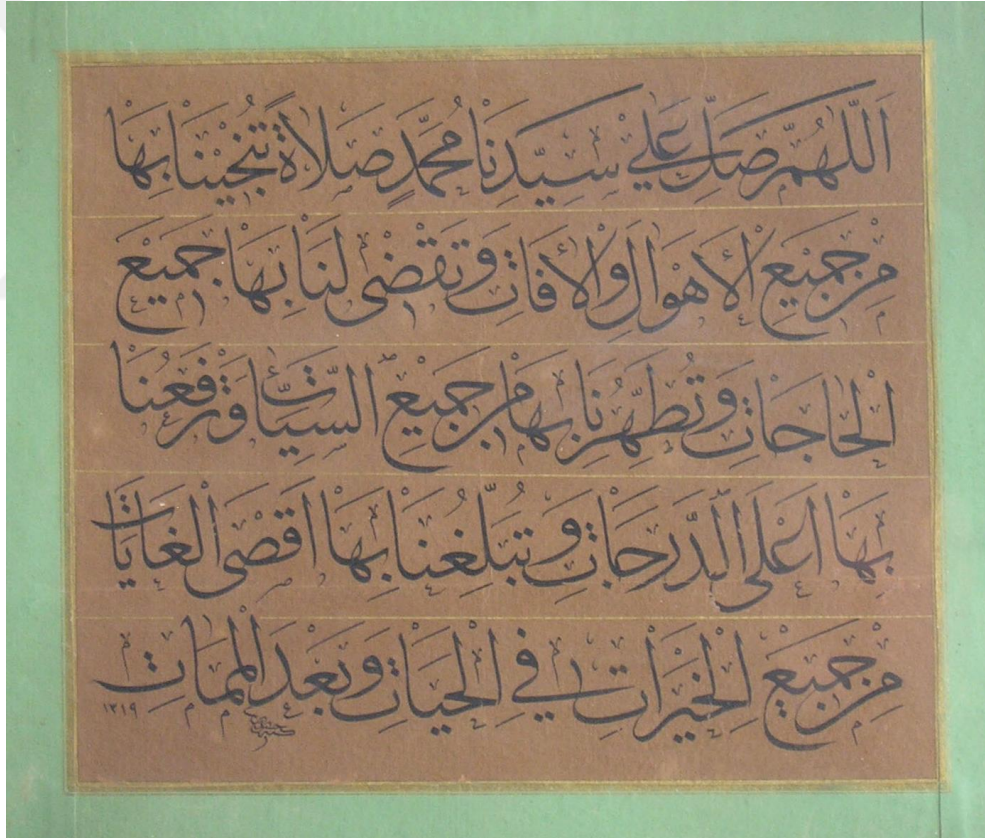 اَللّٰهُمَّ صَلِّ عَلٰى سَيِّدِنَا مُحَمَّدٍ صَلَاةً تُنْجِيْنَا بِهَا
مِنْ جَمِيْعِ الْاَهْوَالِ وَالْاٰفَاتِ وَتَقْضِى لَنَا بِهَا جَمِيْعَ
الْحَاجَاتِ وَتُطَهِّرُنَا بِهَا مِنْ جَمِيْعِ السَّيِّئَاتِ وَتَرْفَعُنَا
بِهَا اَعْلَى الدَّرَجَاتِ وَتُبَلِّغُنَا بِهَا اَقْصَى الْغَايَاتِ
مِنْ جَمِيْعِ الْخَيْرَاتِ فِى الْحَيَاتِ وَبَعْدَ الْمَمَاتِ
١٣١٩